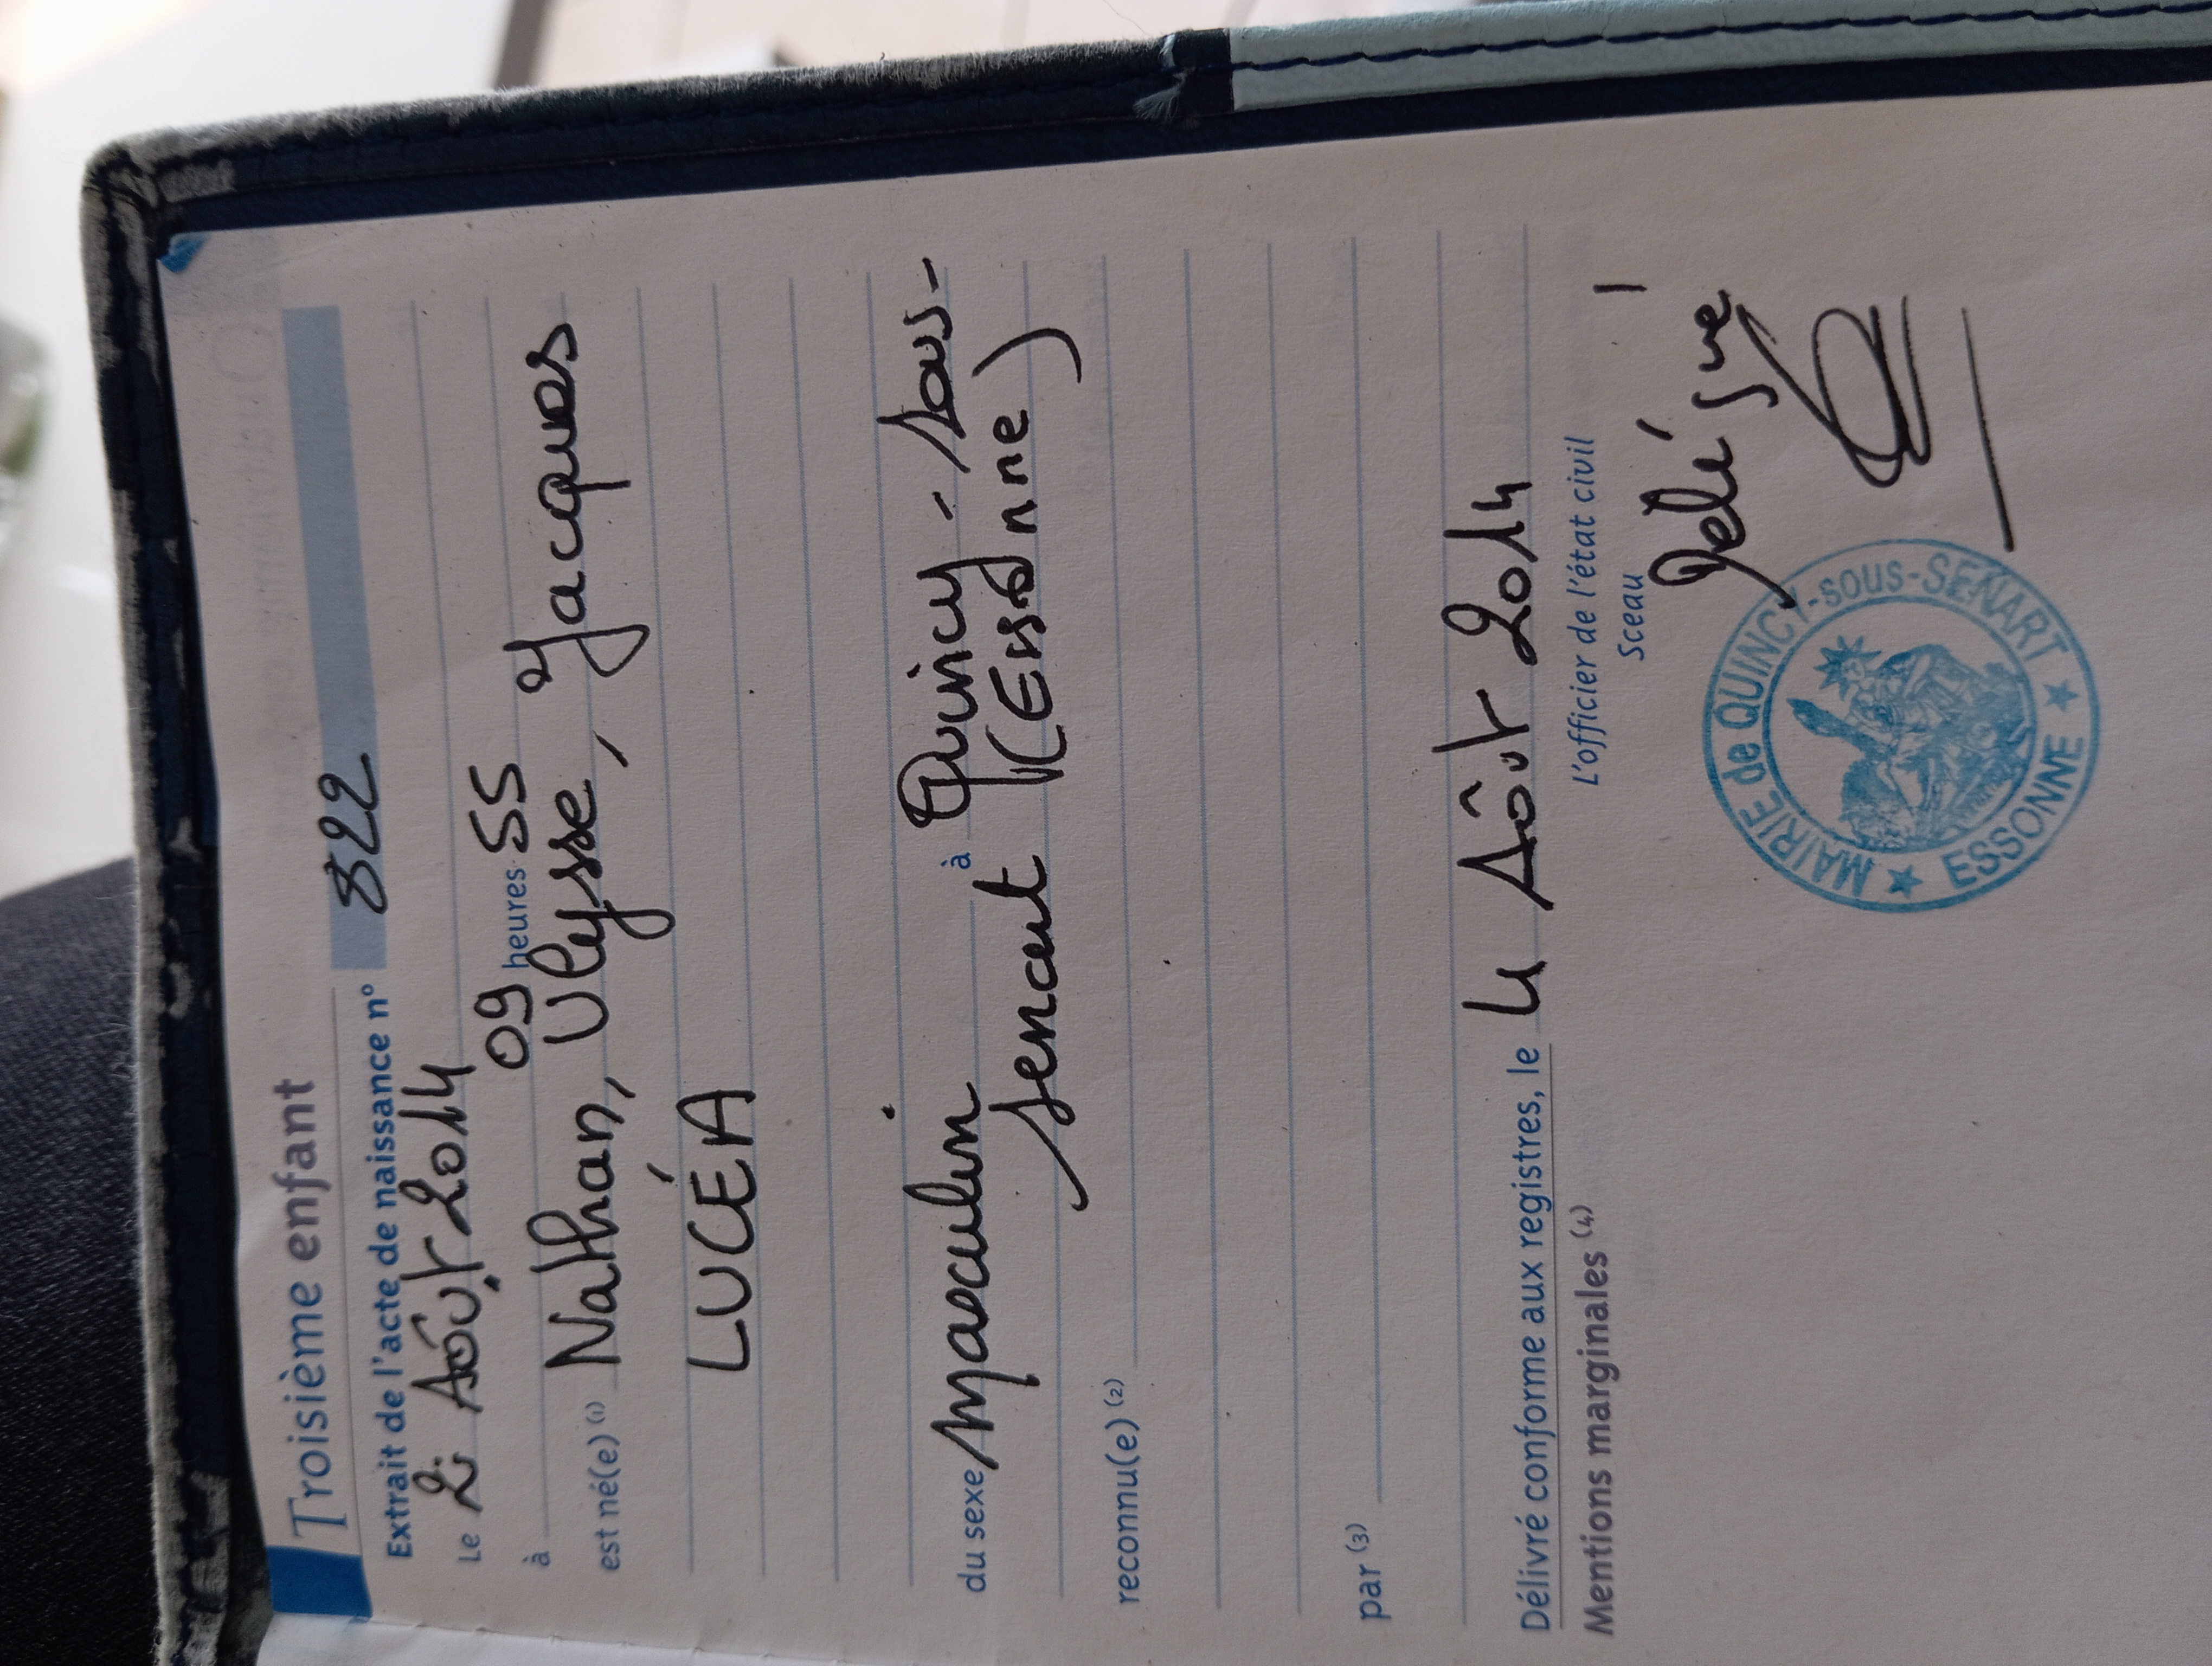 Troisième enfant
Extrait de l'acte de naissance n° 822
Le 2 Août 2014
à 09 heures 55
est né(e) (1) Nathan, Ulysse, Jacques
LUCÉA
du sexe masculin à Quincy-sous-
senart (Essonne)
reconnu(e) (2)
par (3)
Délivré conforme aux registres, le 4 Août 2014
Mentions marginales (4)
L'officier de l'état civil
Sceau
MAIRIE de QUINCY-sous-SENART
ESSONNE